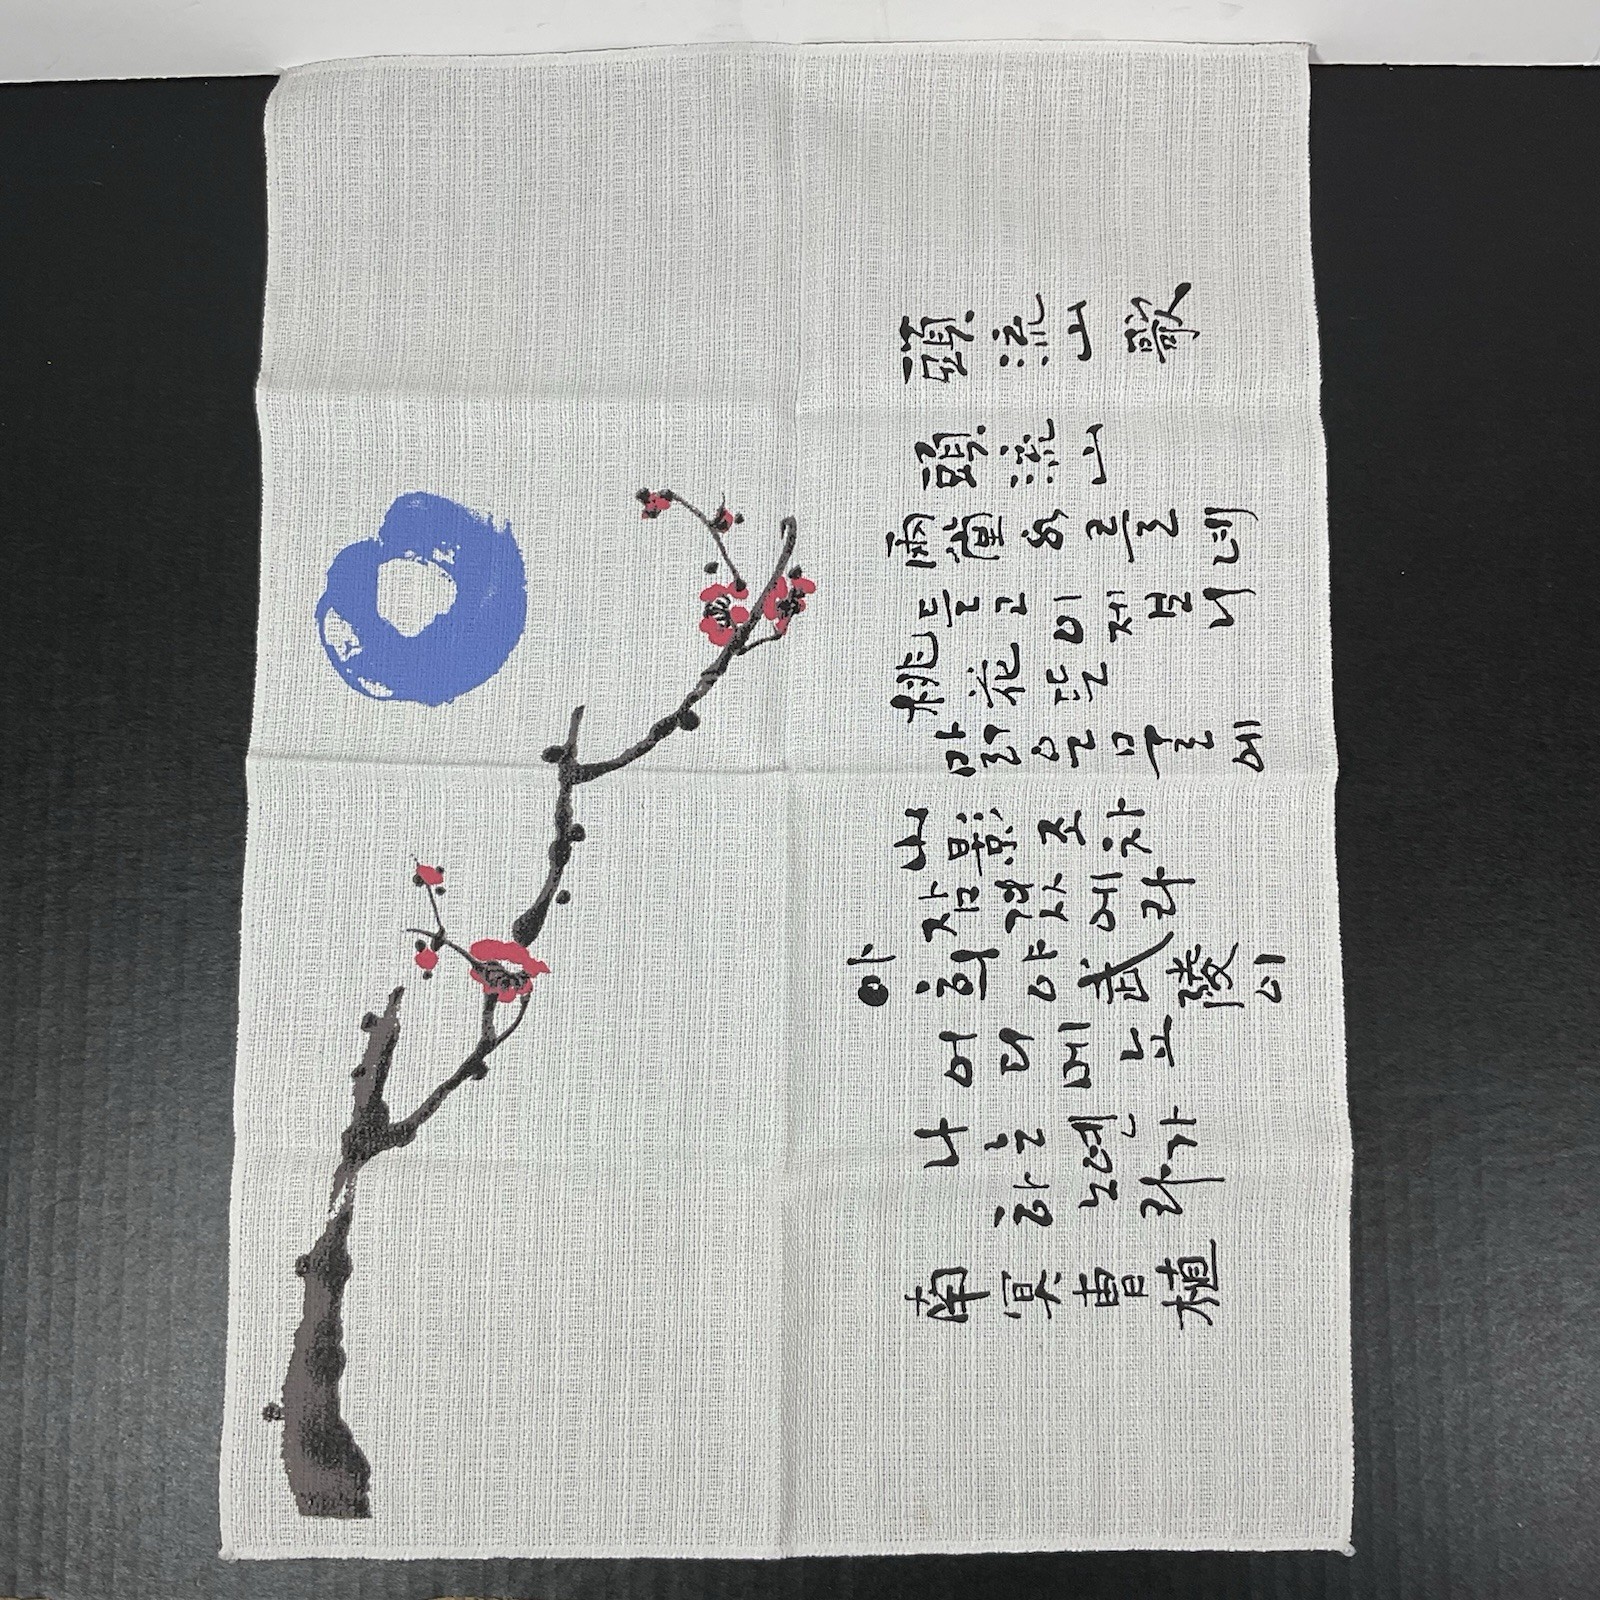 頭流山歌
頭流山
兩端水를 네
듣고 이제 보니
桃花 뜬
맑은 물에
山影조차
잠겼에라
아희야 武陵이
어디메뇨
나는 옌가
하노라
南冥曺植